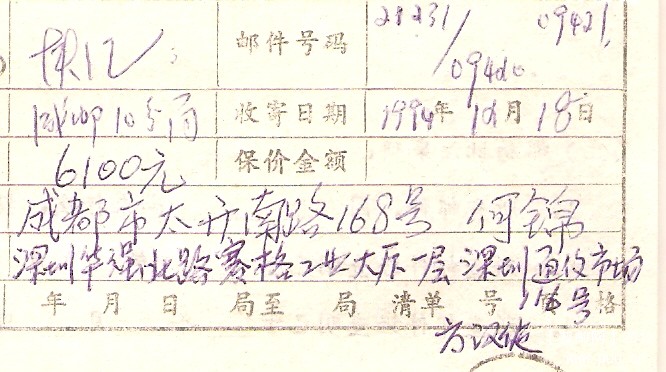 邮件号码 21231/09420 09421
成都10支局 收寄日期 1994年12月18日
6100元 保价金额
成都市太升南路168号 何锦
深圳华强北路赛格工业大厦一层 深圳通信市场
年 月 日 局至 局 清单 号 格
号